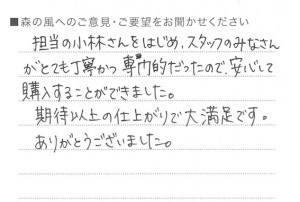 ■森の風へのご意見・ご要望をお聞かせください
担当の小林さんをはじめ、スタッフのみなさん
がとても丁寧かつ専門的だったので、安心して
購入することができました。
期待以上の仕上がりで大満足です。
ありがとうございました。